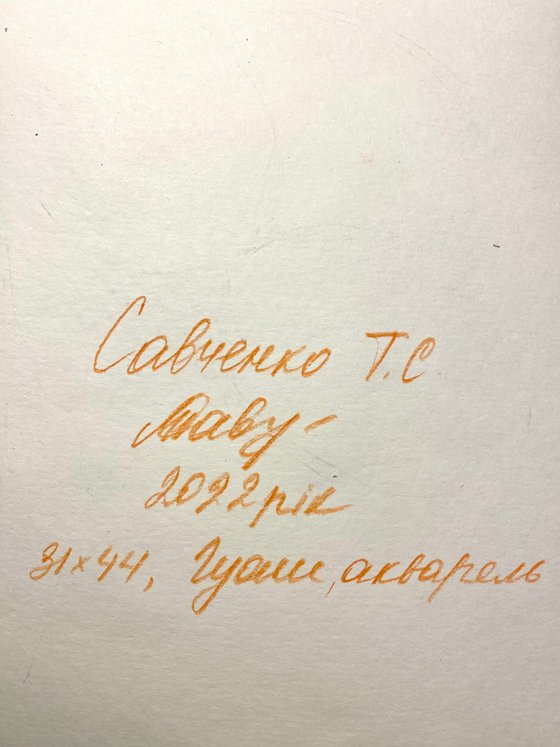 Савченко Т.С
2022 рік
31×44, Гуаш, акварель